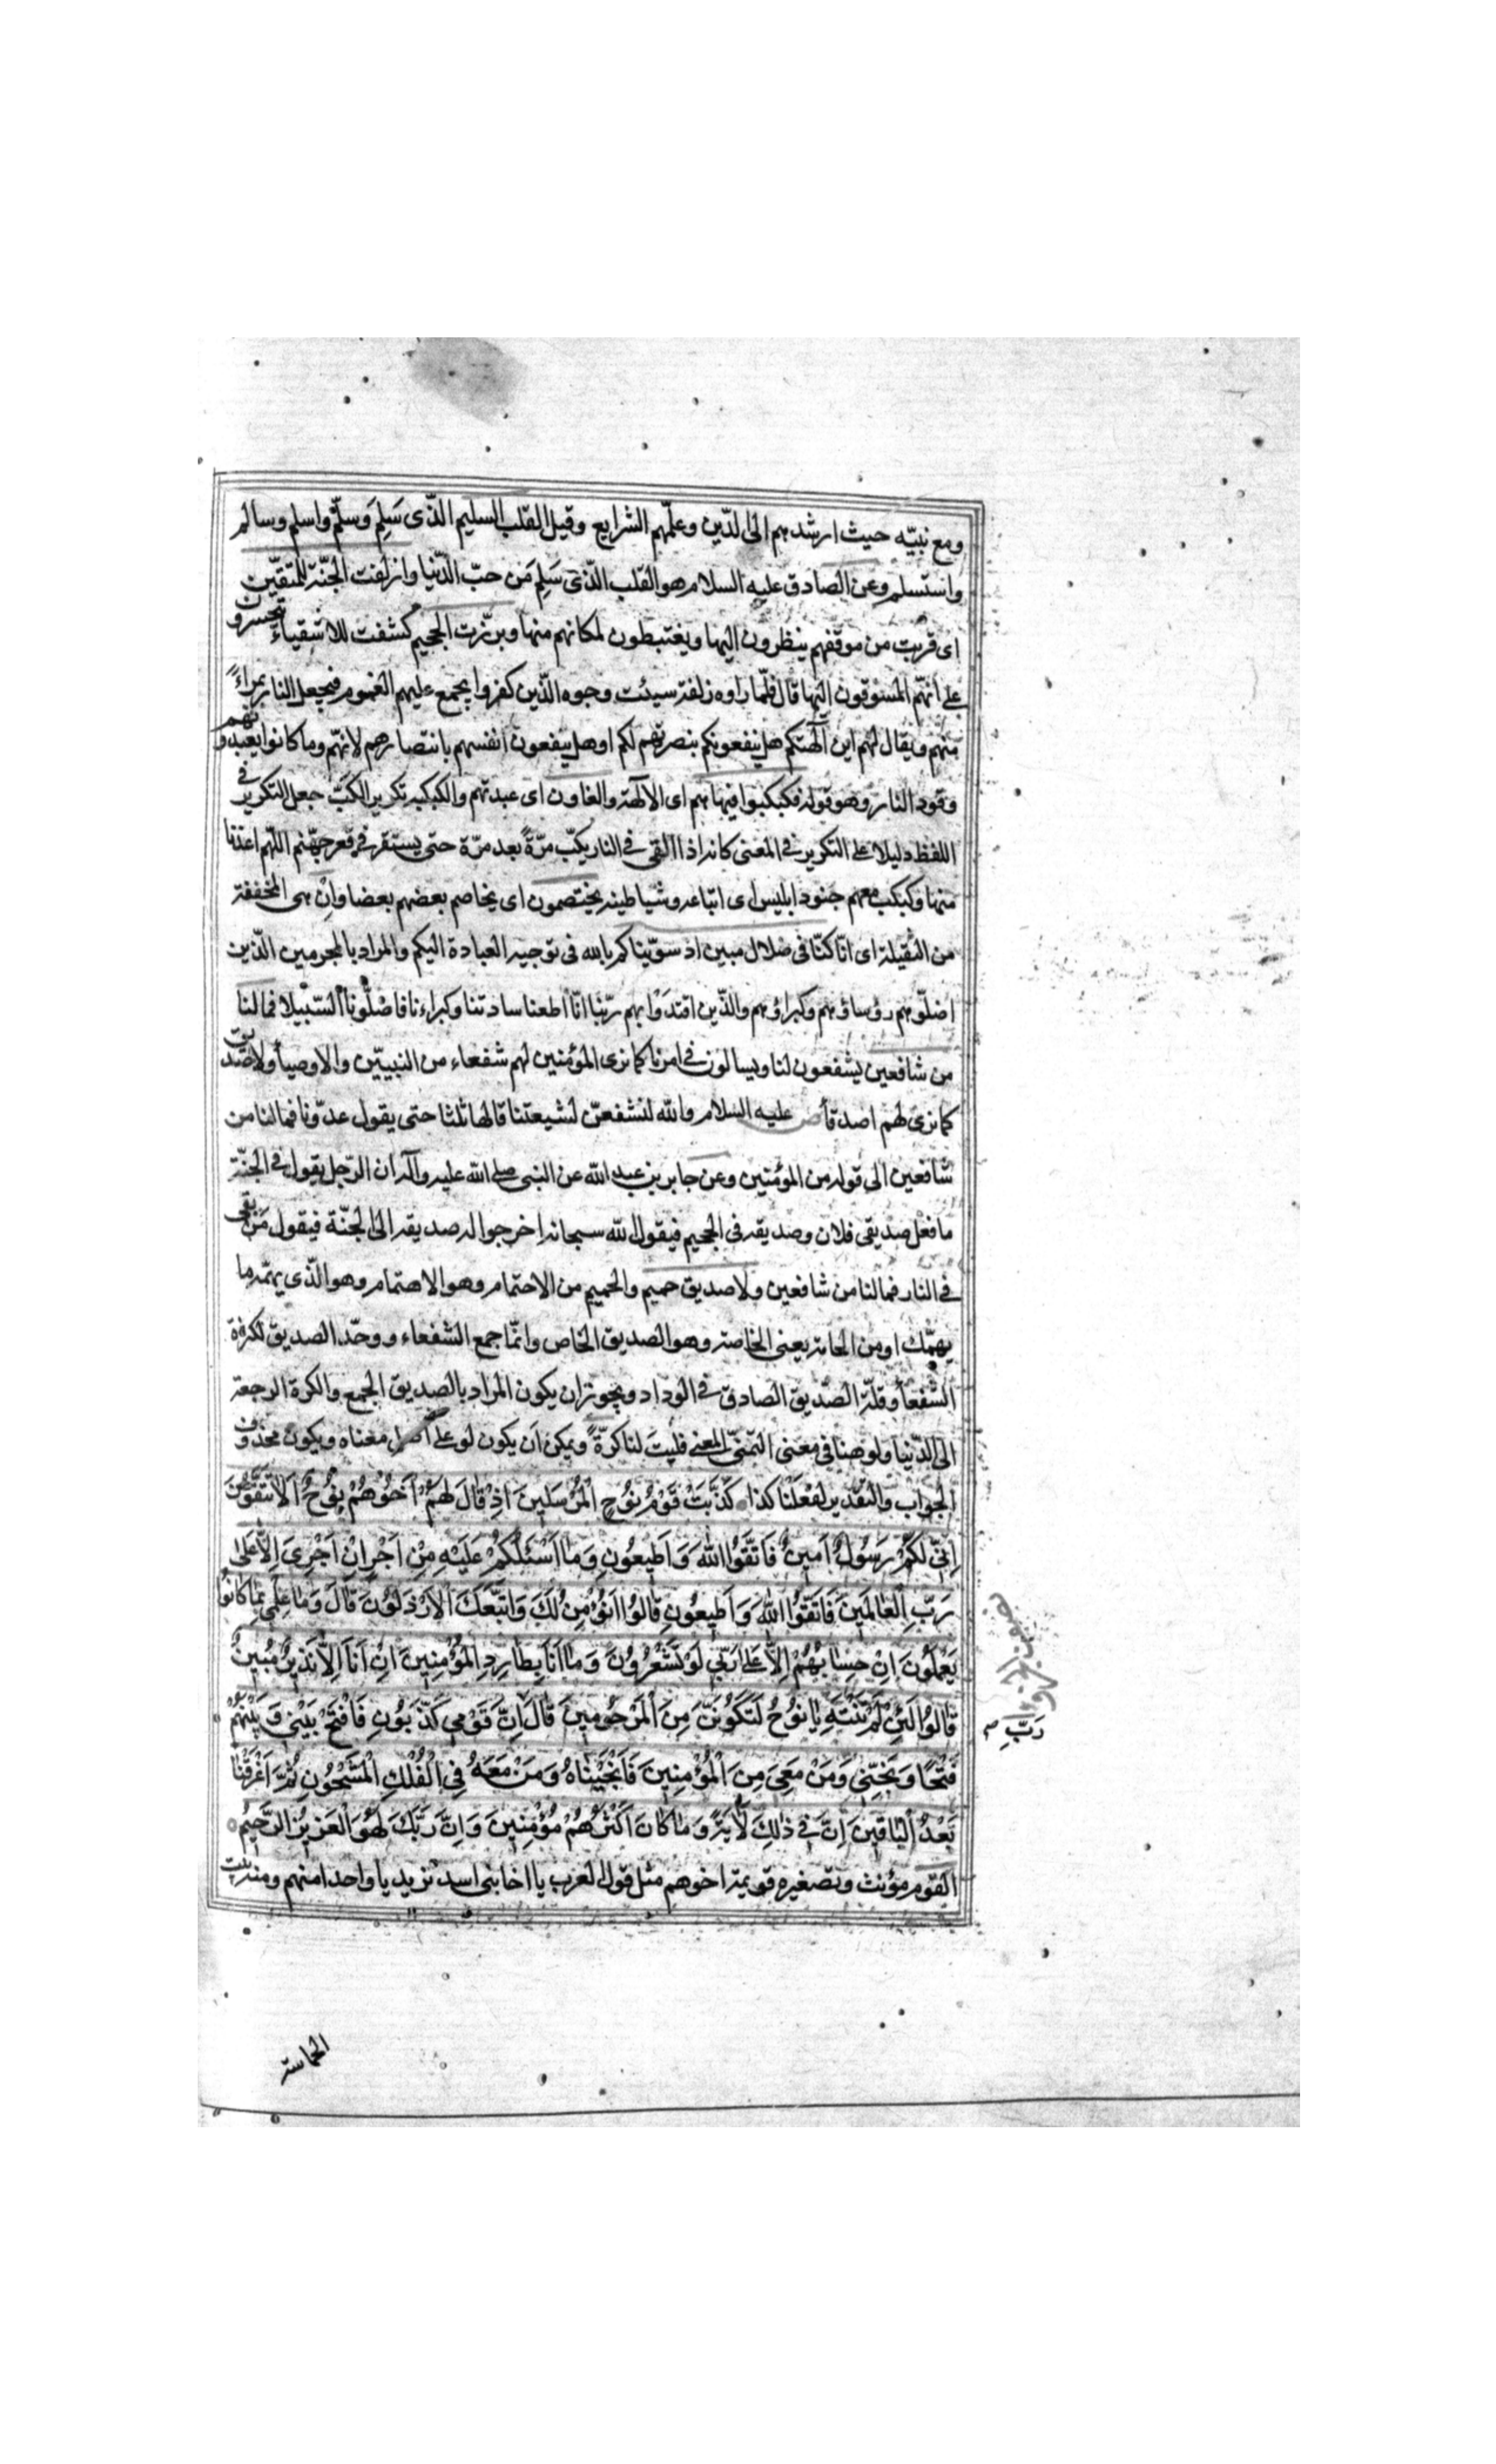 ومع نبيّه حيث ارشدهم الى الدّين وعلّمهم الشرايع وقيل القلب السليم الذّى سَلِمَ وَسلَّم واسلم وسالم
واستسلم وعن الصادق عليه السلام هو القلب الذّى سَلِمَ مَن حبّ الدّنيا وازلفت الجنّة للمتقيّن
اى قربت من موقفهم ينظرون اليها ويغتبطون لمكانهم منها وبرّزت الجحيم كشفت للاشقياء يتحسرون
على انهّم المسوقون اليها قال فلمّا راوه زلفة سيئت وجوه الذّين كفروا يجمع عليهم الغموم فيجعل النار بمراءً
منهم ويقال لهم اين آلهتكم هل ينفعونكم بنصرتهم لكم او هل ينفعون انفسهم بانتصارهم لانهّم وما كانوا يعبدونهم
وقود النار وهو قوله فكبكبوا فيها هم اى الآلهة والغاون اى عبدتهم والكبكبه تكرير الكبّ جعل التكرير فى
اللفظ دليلا على التكرير فى المعنى كانه اذا القى فى النار يكبّ مرّةً بعد مرّة حتى يستقر فى قعر جهّنم اللّهم اعذنا
منها وكبكب معهم جنود ابليس اى اتباعه وشياطينه يختصمون اى يخاصم بعضهم بعضا وانْ هى المخففة
من الثقيلة اى انّا كنّا فى ضلال مبين اذ سوّيناكم بالله فى توجيه العبادة اليكم والمراد بالمجرمين الذّين
اضلّوهم رؤساؤهم وكبراؤهم والذّين اقتدَوْا بهم ربّنا انّا اطعنا سادتنا وكبراءنا فاضلّونا السّبيلا فما لنا
من شافعين يشفعون لنا ويسالون فى امرنا كما نرى المؤمنين لهم شفعاء من النبييّن والاوصيا ولا صديق
كما نرى لهم اصدقأ ص عليه السلام والله لنشفعنّ لشيعتنا قالها ثلثا حتى يقول عدّونا فما لنا من
شافعين الى قوله من المؤمنين وعن جابر بن عبد الله عن النبى صلى الله عليه وآله ان الرّجل يقول فى الجنّة
ما فعل صديقى فلان وصديقه فى الجحيم فيقول الله سبحانه اخرجوا له صديقه الى الجنّة فيقول مَن بقى
فى النار فما لنا من شافعين ولا صديق حميم والحميم من الاحتمام وهو الاهتمام وهو الذّى يهمّه ما
يهمّك او من الحامة بمعنى الخاصة وهو الصديق الخاص وانمّا جمع الشفعاء ووحّد الصديق لكثرة
الشّفعأ وقلّة الصّديق الصادق فى الوداد ويجوز ان يكون المراد بالصديق الجمع والكرة الرجعة
الى الدّنيا ولو هنا فى معنى التمنّى المعنى فليت لنا كرّةً ويمكن اَن يكون لو على اصل معناه ويكون محذوف
الجواب والتقدير لفعَلْنا كذا كَذَّبَتْ قَوْمُ نوُحٍ الْمُرْسَلينَ اِذْ قٰالَ لَهُمْ اَخوُهُمْ نوُحٌ اَلاٰ تَتَّقوُنَ
اِنّى لَكُمْ رَسُولٌ اَمينٌ فَاتَّقوُا اللهَ وَاَطيعُونِ وَمٰا اَسْئَلُكُمْ عَلَيْهِ مِنْ اَجْرٍ اِنْ اَجْرِىَ اِلاّٰ عَلىٰ
رَبِّ الْعٰالَمينَ فَاتَّقوُا اللهَ وَاَطيعوُنِ قٰالوُا اَنُؤْمِنُ لَكَ وَاتَّبَعَكَ الْاَرْذَلوُنَ قٰالَ وَمٰا عِلْمى بِمٰا كٰانوُا
يَعْمَلوُنَ اِنْ حِسٰابُهُمْ اِلاّٰ عَلىٰ رَبّى لَوْ تَشْعُرُونَ وَمٰا اَنَا بِطٰارِدِ الْمُؤْمِنينَ اِنْ اَنَا اِلاّٰ نَذيرٌ مُبينٌ
قٰالوُا لَئِنْ لَمْ تَنْتَهِ يٰا نوُحُ لَتَكوُنَنَّ مِنَ الْمَرْجوُمينَ قٰالَ اِنَّ قَوْمى كَذَّبوُنِ فَافْتَحْ بَيْنى وَبَيْنَهُمْ
رَبِّ
فَتْحًا وَنَجِّنى وَمَنْ مَعِىَ مِنَ الْمُؤْمِنينَ فَاَنْجَيْنٰاهُ وَمَنْ مَعَهُ فِى الْفُلْكِ الْمَشْحُونِ ثُمَّ اَغْرَقْنٰا
بَعْدُ الْبٰاقينَ اِنَّ فى ذٰلِكَ لَاٰيَةً وَمٰا كٰانَ اَكْثَرُهُمْ مُؤْمِنينَ وَاِنَّ رَبَّكَ لَهُوَ الْعَزيزُ الرَّحيمُ
القوم مؤنث وتصغيره قويمة اخوهم مثل قول العرب يا اخا بنى اسد تريد يا واحدا منهم ومنه بيت
الحماسة